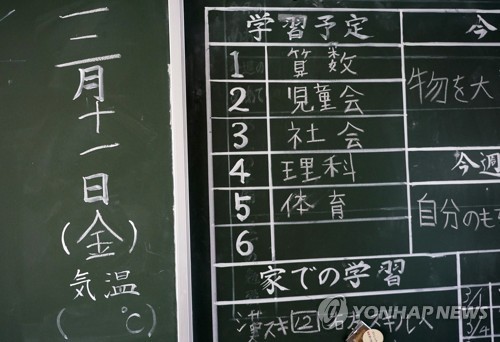 三月十一日
(金)
気温
( ℃)
学習予定
1 算数
2 児童会
3 社会
4 理科
5 体育
6
家での学習
漢スキ12
今
物を大
今週
自分のも
3/1
3/4
YONHAP NEWS
YONHAPNEWS